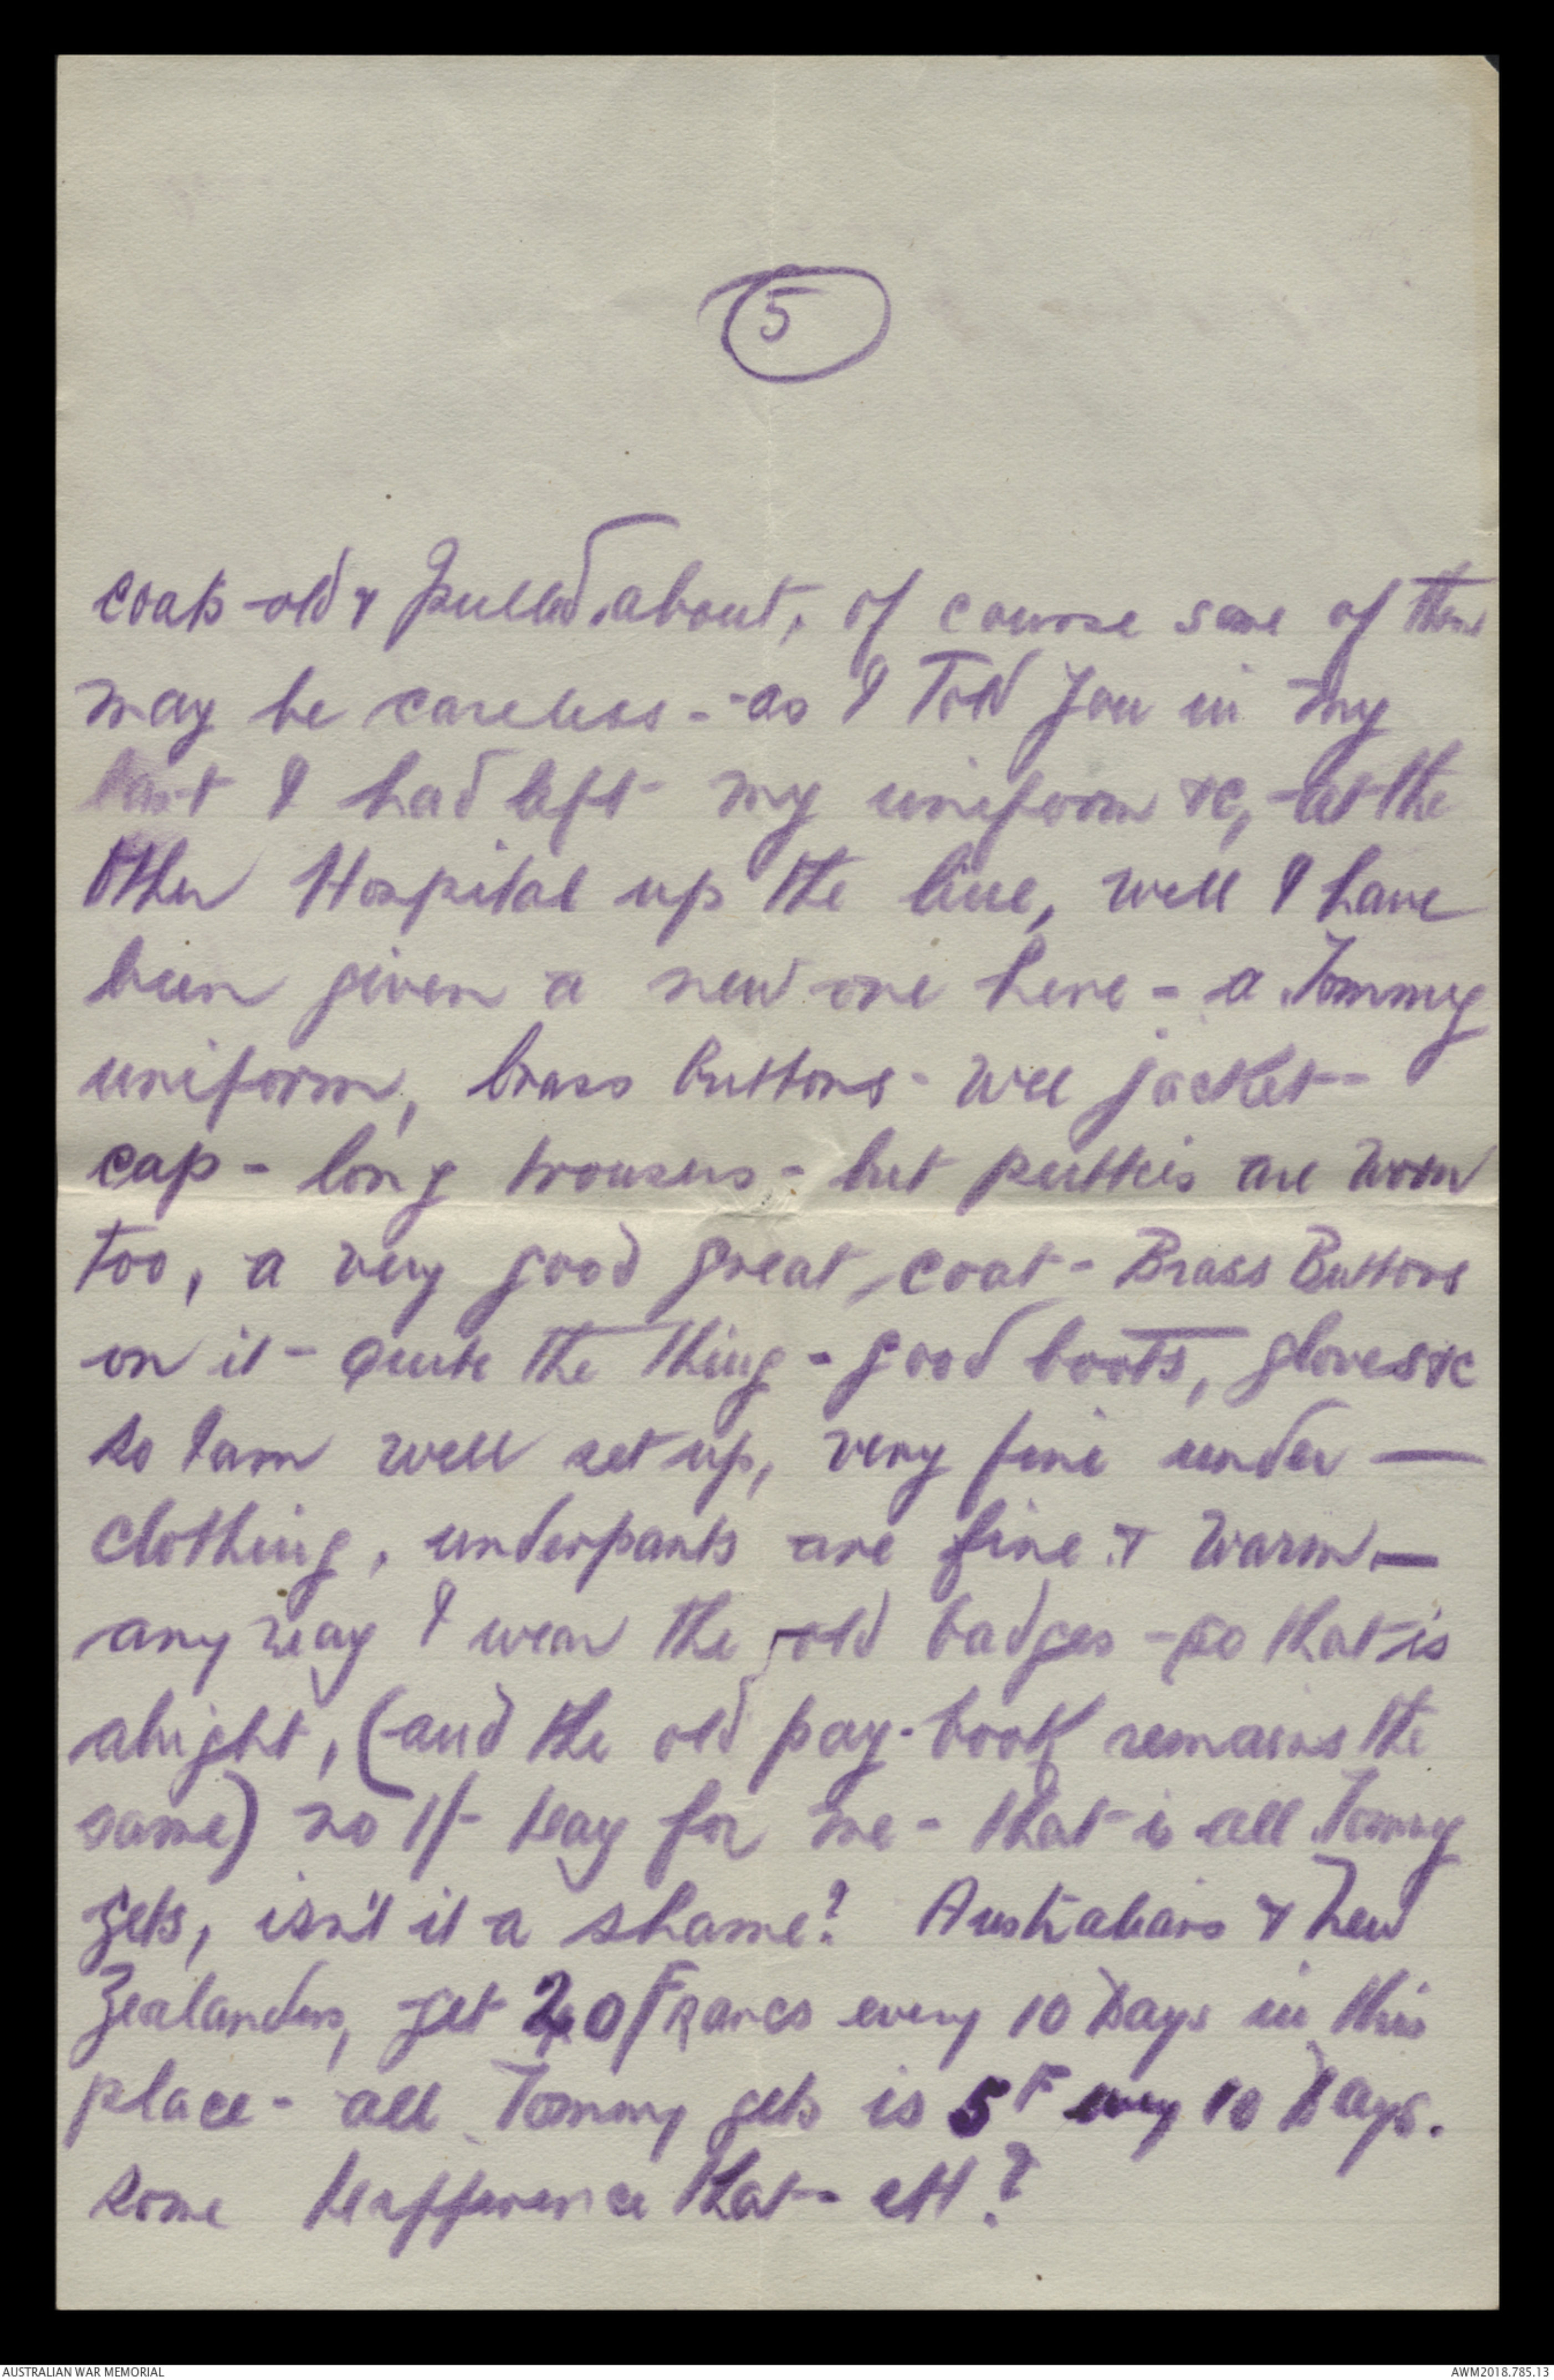 5
coats old & pulled about, of course some of them
may be careless - as I Told you in my
last I had left my uniform &c, at the
other Hospital up the line, well I have
been given a new one here - a Tommy
uniform, brass buttons - wee jacket -
cap - long trousers - but putties are worn
too, a very good great coat - Brass Buttons
on it - quite the thing - good boots, gloves &c
so I am well set up, very fine under -
clothing, underpants are fine & warm -
any way I wear the old badges - so that is
alright, (and the old pay-book remains the
same) no 1/- day for me - that is all Tommy
gets, isn't it a shame? Australians & New
Zealanders, get 20 Francs every 10 Days in this
place - all Tommy gets is 5 F every 10 Days.
some difference that - eh?
AUSTRALIAN WAR MEMORIAL
AWM2018.785.13